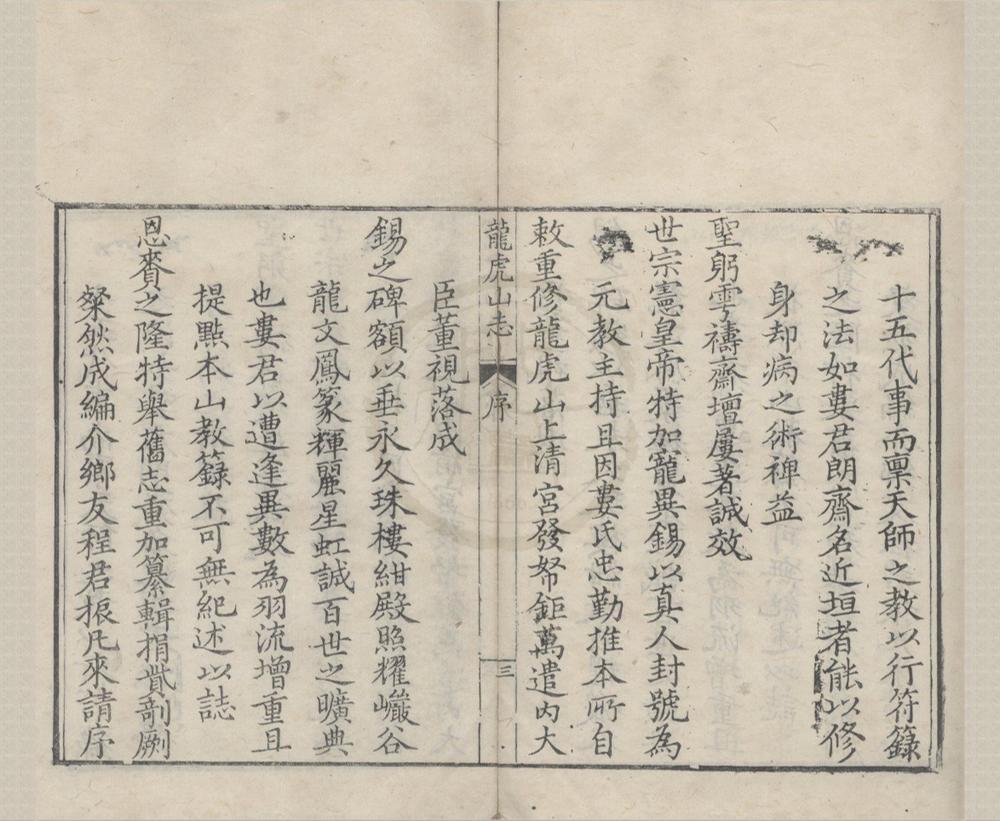 十五代事而禀天師之教以行符籙
之法如婁君朗齋名近垣者能以修
身却病之術裨益
聖躬雩禱齋壇屢著誠效
世宗憲皇帝特加寵異錫以真人封號為
元教主持且因婁氏忠勤推本所自
敕重修龍虎山上清宮發帑鉅萬遣內大
龍虎山志 序 三
臣董視落成
錫之碑額以垂永久珠樓紺殿照耀巘谷
龍文鳳篆輝麗星虹誠百世之曠典
也婁君以遭逢異數為羽流增重且
提點本山教籙不可無紀述以誌
恩賚之隆特舉舊志重加纂輯捐貲剞劂
粲然成編介鄉友程君振凡來請序